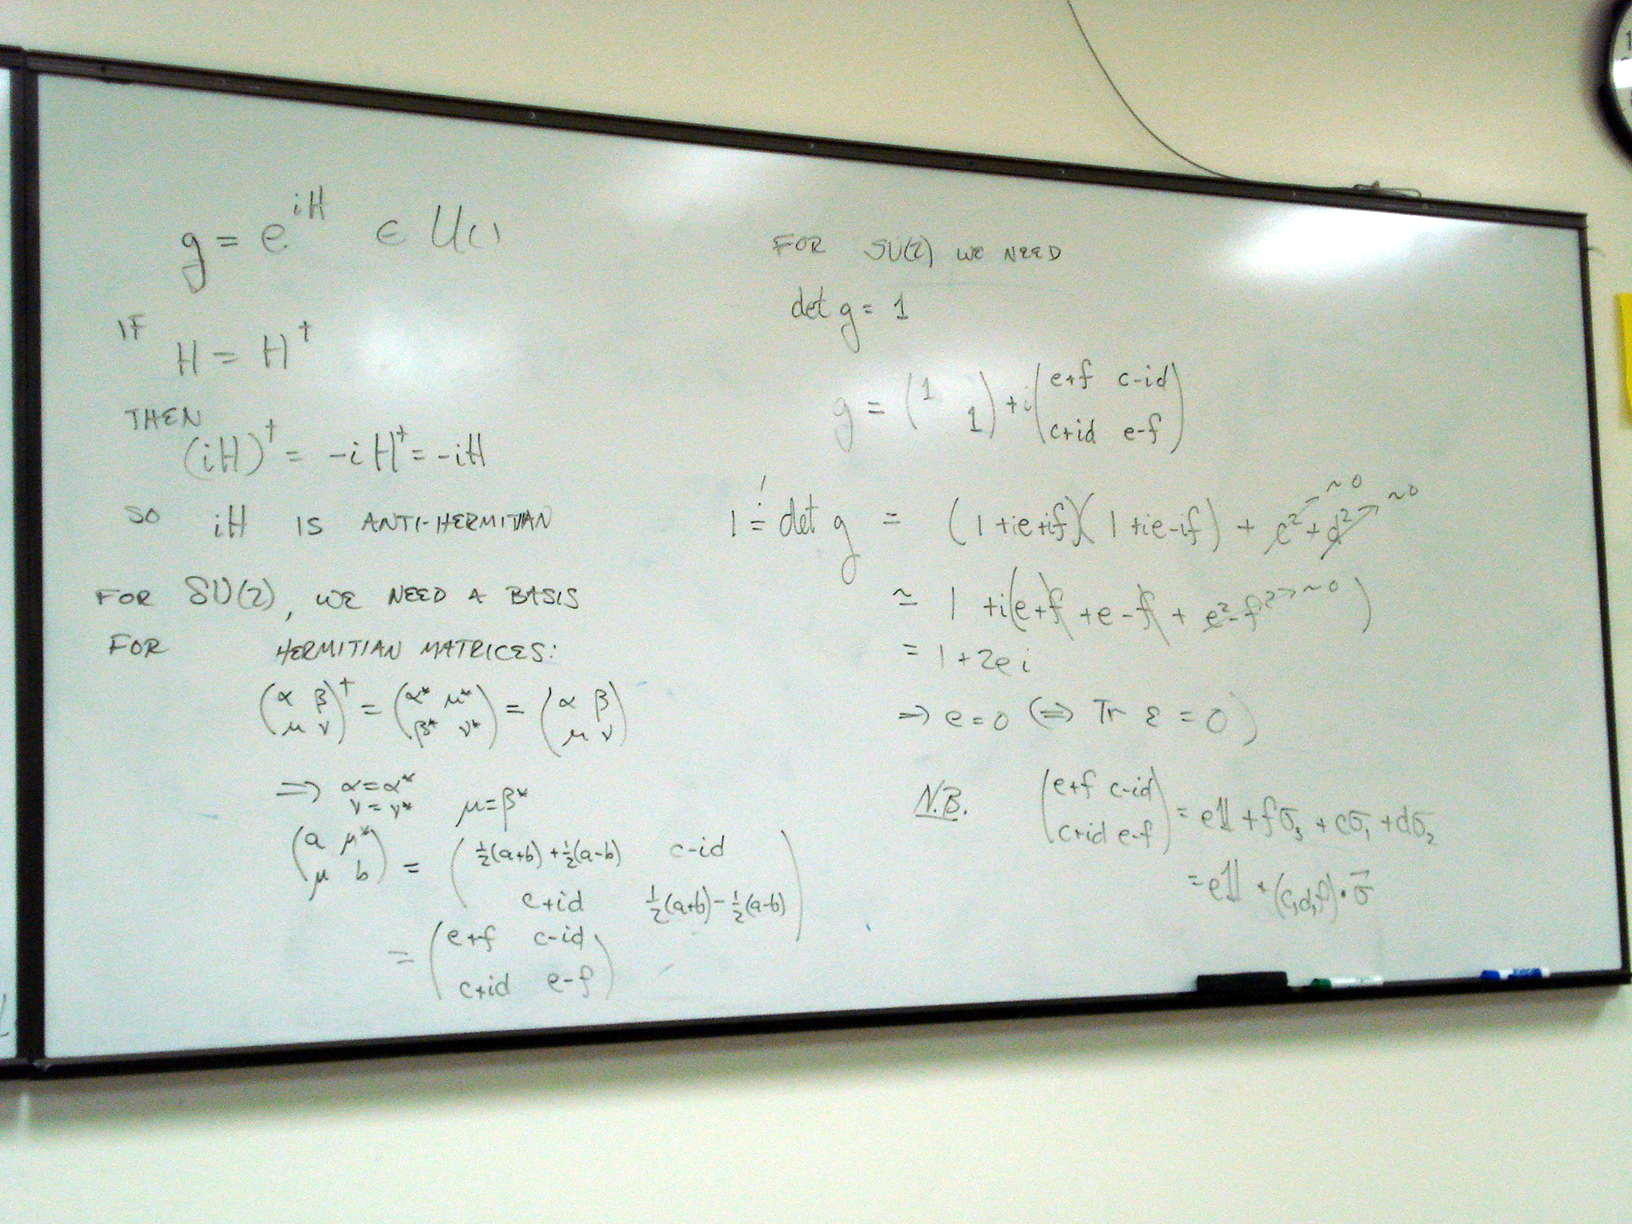 g = e^{iH} ∈ U( )
IF
H = H^†
THEN
(iH)^† = -iH^† = -iH
SO iH IS ANTI-HERMITIAN
FOR SU(2), WE NEED A BASIS
FOR HERMITIAN MATRICES:
(α β; μ ν)^† = (α* μ*; β* ν*) = (α β; μ ν)
⇒ α=α*
ν=ν* μ=β*
(a μ*; μ b) = (½(a+b)+½(a-b) c-id; c+id ½(a+b)-½(a-b))
= (e+f c-id; c+id e-f)
FOR SU(2) WE NEED
det g = 1
g = (1 ; 1) + i(e+f c-id; c+id e-f)
1 = det g = (1+ie+if)(1+ie-if) + c²+d² ~0 ~0
≃ 1 + i(e+f+e-f + e²-f² → ~0)
= 1+2ei
⇒ e=0 (⇔ Tr ε = 0)
N.B. (e+f c-id; c+id e-f) = e𝟙 + fσ₃ + cσ₁ + dσ₂
= e𝟙 + (c,d,f)·σ⃗